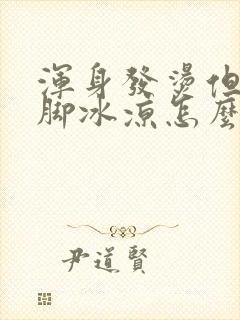 渾身發燙但
腳冰涼怎麼
尹道賢